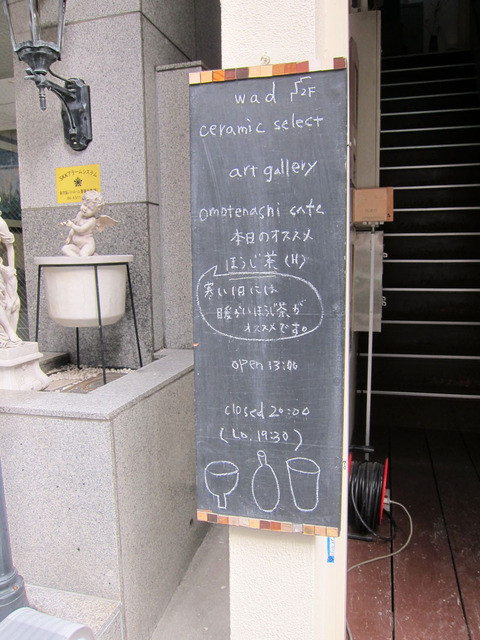 wad 2F
ceramic select
art gallery
omotenashi cafe
本日のオススメ
ほうじ茶(H)
寒い日には
暖かいほうじ茶が
オススメです。
open 13:00
closed 20:00
(L.O. 19:30)